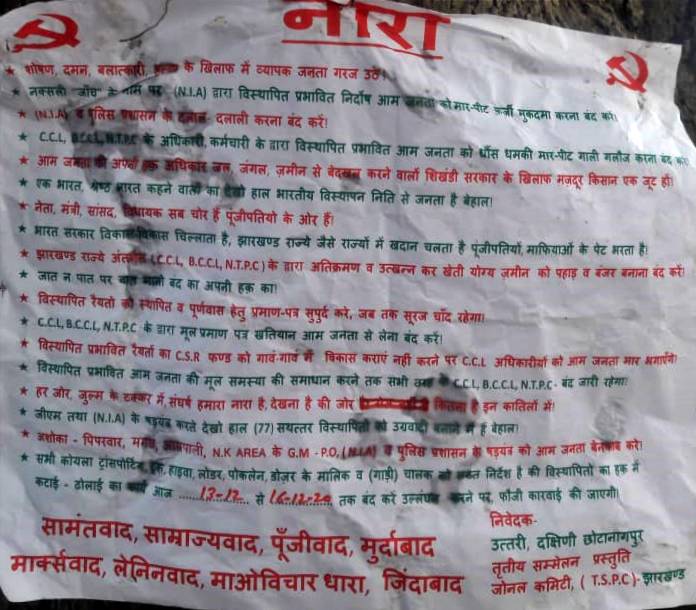 नारा
★ शोषण, दमन, बलात्कारी, के खिलाफ में व्यापक जनता गरज उठे!
★ नक्सली जाँच के नाम पर (N.I.A) द्वारा विस्थापित प्रभावित निर्दोष आम जनता को मार-पीट फर्जी मुकदमा करना बंद करें!
★ (N.I.A) व पुलिस प्रशासन के दलाल- दलाली करना बंद करें!
★ C.C.L, B.C.C.L, N.T.P.C के अधिकारी, कर्मचारी के द्वारा विस्थापित प्रभावित आम जनता को धौंस धमकी मार-पीट गाली गलौज करना बंद करें!
★ आम जनता की अपनी हक अधिकार जल, जंगल, ज़मीन से बेदखल करने वालों शिखंडी सरकार के खिलाफ मज़दूर किसान एक जूट हों!
★ एक भारत, श्रेष्ठ भारत कहने वालों का देखो हाल भारतीय विस्थापन निति से जनता है बेहाल!
★ नेता, मंत्री, सांसद, विधायक सब चोर हैं पूंजीपतियों के ओर हैं!
★ भारत सरकार विकास-विकास चिल्लाता है, झारखण्ड राज्ये जैसे राज्यों में खदान चलता है पूंजीपतियों, माफियाओं के पेट भरता है!
★ झारखण्ड राज्ये अंतर्गत (C.C.L, B.C.C.L, N.T.P.C) के द्वारा अतिक्रमण व उत्खनन कर खेती योग्य ज़मीन को पहाड़ व बंजर बनाना बंद करें!
★ जात न पात पर बात बंद का अपनी हक़ का!
★ विस्थापित रैयतों को स्थापित व पूर्णवास हेतु प्रमाण-पत्र सुपुर्द करे, जब तक सूरज चाँद रहेगा!
★ C.C.L, B.C.C.L, N.T.P.C के द्वारा मूल प्रमाण पत्र खतियान आम जनता से लेना बंद करें!
★ विस्थापित प्रभावित रैयतों का C.S.R फण्ड को गावं-गावं में विकास कराएं नहीं करने पर C.C.L अधिकारीयों को आम जनता मार भगाएंगे!
★ विस्थापित प्रभावित आम जनता की मूल समस्या की समाधान करने तक सभी C.C.L, B.C.C.L, N.T.P.C - बंद जारी रहेगा!
★ हर जोर, जुल्म के टक्कर में, संघर्ष हमारा नारा है, देखना है की जोर कितना है इन कातिलों में!
★ जीएम तथा (N.I.A) के षड्यंत्र करते देखो हाल (77) सथत्तर विस्थापितों को उग्रवादी बनाने में हैं बेहाल!
★ अशोका - पिपरवार, मगध, आम्रपाली, N.K AREA के G.M - P.O, (N.I.A) व पुलिस प्रशासन के षड्यंत्र को आम जनता बेनकाब करे!
★ सभी कोयला ट्रांसपोर्टिंग, ट्रक, हाइवा, लोडर, पोकलेन, डोज़र के मालिक व (गाड़ी) चालक को सख्त निर्देश है की विस्थापितों का हक़ में
कटाई - ढोलाई का कार्य आज ....13-12.... से 16-12-20 तक बंद करें उल्लंघन करने पर, फौजी कारवाई की जाएगी!
सामंतवाद, साम्राज्यवाद, पूँजीवाद, मुर्दाबाद
मार्क्सवाद, लेनिनवाद, माओविचार धारा, जिंदाबाद
निवेदक-
उत्तरी, दक्षिणी छोटानागपुर
तृतीय सम्मेलन प्रस्तुति
जोनल कमिटी, ( T.S.P.C)- झारखण्ड